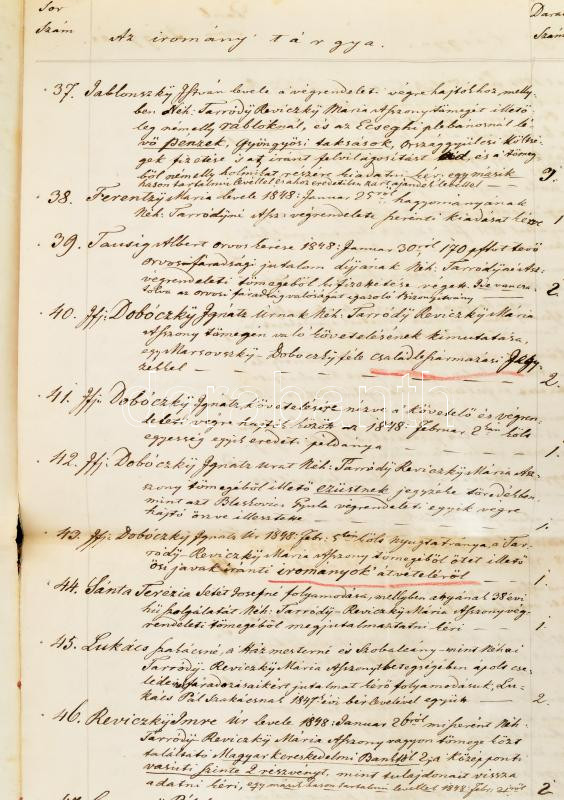 Sor Dara
Szám Szám
Az irományi tárgya.
37. Jablonszky István levele a végrendeleti végrehajtókhoz, melly-
ben Néh: Tarródy Reviczky Mária Aszony tömegét illető
leg némelly rabloknál, és az Ecseghi plebánosnál lé
vő pénzek, Gyöngyösi taksások, Országgyűlési költsé
gek fizetése is az iránt felvilágosítást és a tömeg
ből némelly holmilat részére kiadatni kér, egy másik
hason tartalmu levéllel 3.
38. Ferentzy Maria levele 1848: Januar 25ről hagyományának
Néh: Tarródyné Asz: végrendelete szerénti kiadását kéri 1
39. Tausig Albert orvos kérése 1848: Januar 30ról 170 pftot tevő
orvosi fáradsági jutalom díjjának Néh: Tarródyné Asz:
végrendeleti tömegéből kifizetése végett. Ide van csa-
tolva az orvosi fáradság valóságát igazoló Bizonyítvány 2.
40. Ifj: Dobóczky Ignátz Urnak Néh: Tarródy Reviczky Mária
Aszony tömegén való követelésének kimutatása,
egy Marsovszky-Dobóczky féle családleszármazási Jegy-
zékkel 2.
41. Ifj: Dobóczky Ignátz követelésére nézve a követelő és végren-
deleti végrehajtók közök az 1848: Februar 2án költ
egyesség egyik eredeti példánya 1.
42. Ifj: Dobóczky Ignátz urat Néh: Tarródy Reviczky Mária Asz-
szony tömegéből illető ezüstnek jegyzéke töredékben,
mint azt Blaskovics Gyula végrendeleti egyik végre
hajtó öszve illesztette 1.
43. Ifj: Dobóczky Ignátz Ur 1848: Feb: 5én költ nyugtatványa a Tar-
ródy-Reviczky Mária Aszony tömegéből őtet illető
ősi javak iránti irományok átvételéről 1.
44. Sánta Terézia Setét Josefné folyamodása, mellyben atyának 38 évi
hű szolgálatát Néh: Tarródy-Reviczky Mária Aszony vég-
rendeleti tömegéből megjutalmaztatni kéri 1
45. Lukács szakácsné, a Házmesterné és Szobaleány - mint Néhai
Tarródy-Reviczky Mária Aszonyt betegségében ápoló cse-
lédek fáradozásaikért jutalmat kérő folyamodásuk, Lu-
kács Pál Szakácsnak 1847 évi bér levelével együtt 2.
46. Reviczky Imre Ur levele 1848: Januar 26ról miszerént Néh:
Tarródy Reviczky Mária Aszony vagyon tömege közt
találtató Magyar Kereskedelmi Banktól 2, a Középponti
vasúti szinte 2 részvényt, mint tulajdonait vissza
adatni kéri, egy másik hason tartalmu levéllel 1848: Feb: 21ről 2
darabanth